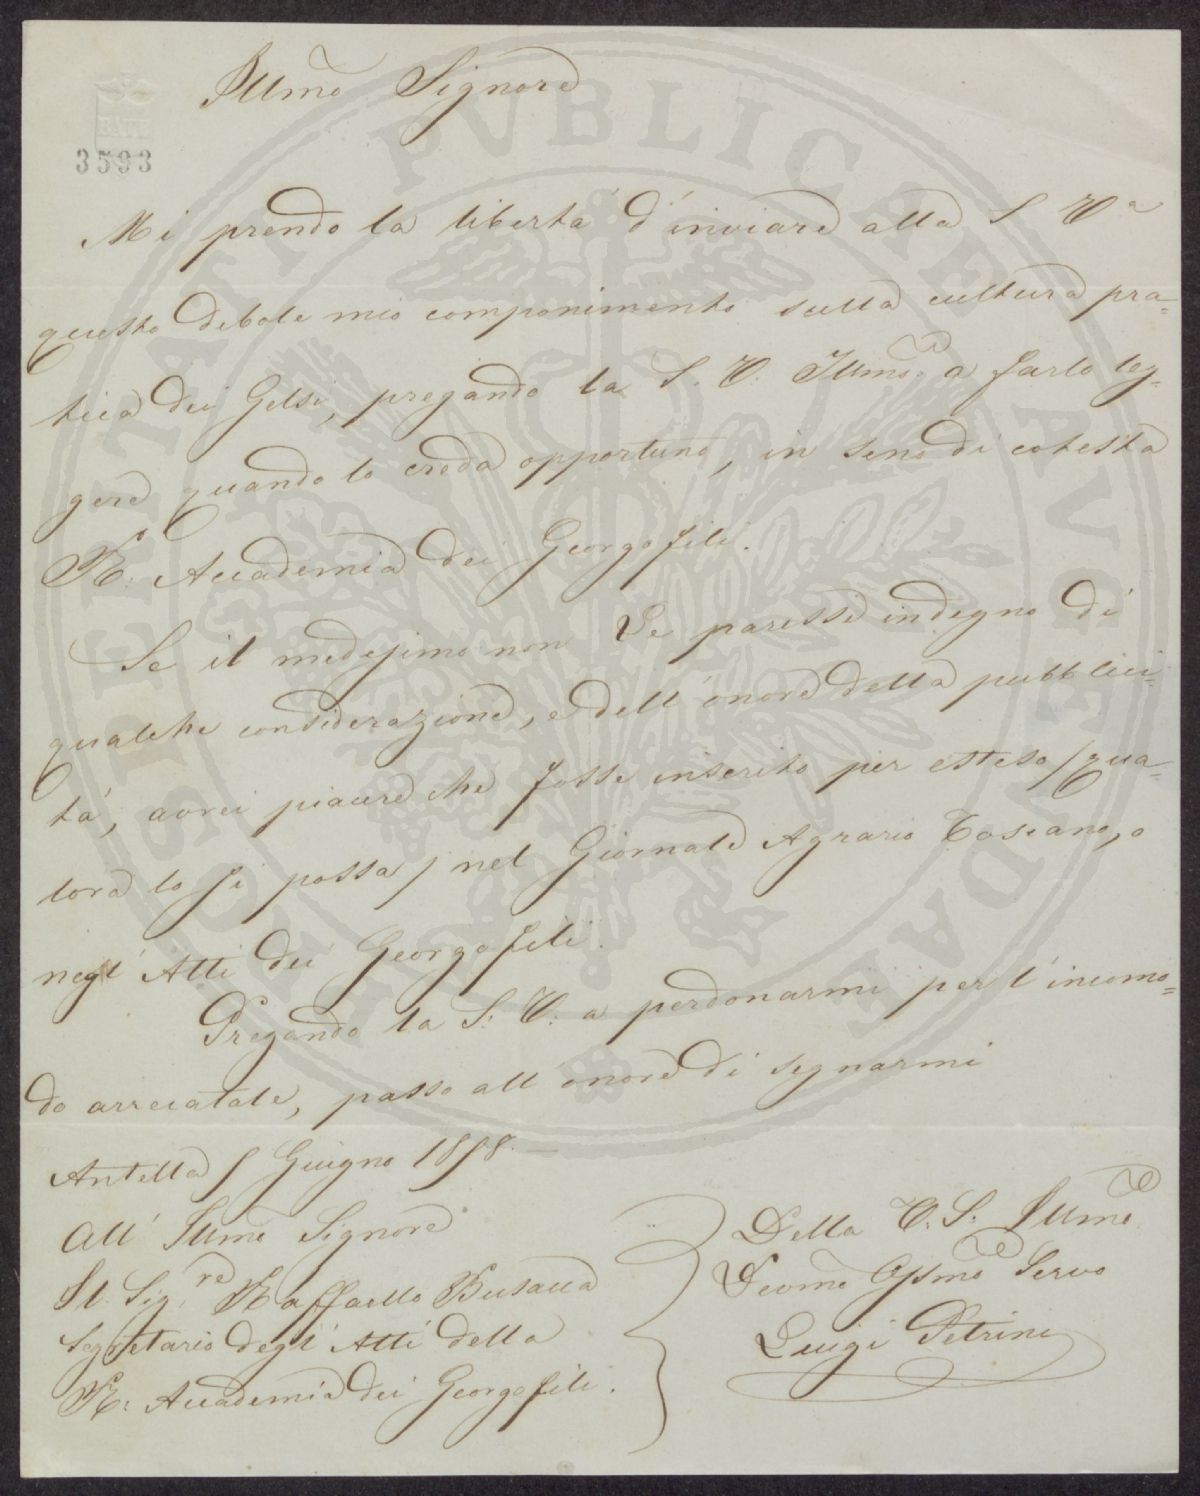 Illmo Signore
BATH
3593
Mi prendo la libertà d'inviare alla S Va
questo debole mio componimento sulla cultura pra=
tica dei Gelsi, pregando la S. V. Illma a farlo leg=
gere quando lo creda opportuno, in seno di cotesta
R: Accademia dei Georgofili.
Se il medesimo non Le paresse indegno di
qualche considerazione, e dell'onore della pubblici=
tà, avrei piacere che fosse inserito per esteso /qua=
lora lo si possa/ nel Giornale Agrario Toscano, o
negl'Atti dei Georgofili.
Pregando la S: V: a perdonarmi per l'incomo=
do arrecatale, passo all'onore di segnarmi
Antella 5 Giugno 1858.—
All' Illmo Signore
Il Sig.re Raffaello Busacca
Segretario degl'Atti della
R: Accademia dei Georgofili.
Della V. S. Illma
Devomo Osmo Servo
Luigi Petrini
PUBLICAE